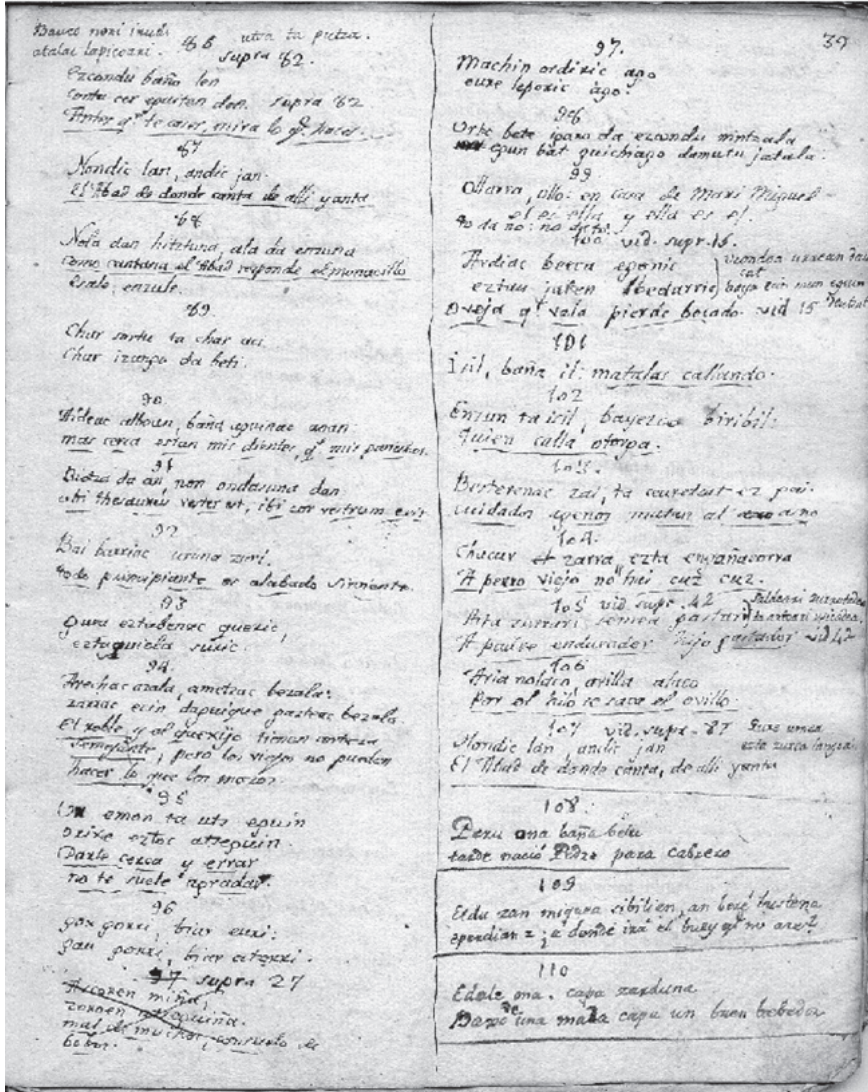 39
Bauco nori irudi
atalac lapicoari.
86 utra ta putra.
supra 82.
Ezcondu baño len
contu cer eguiten den. supra 82
Antes qe. te cases, mira lo qe. haces.
87
Nondic lan, andic jan.
El Abad de donde canta de alli yanta
88
Nola dan hitztuna, ala da enzuna
como cantana el Abad responde el monacillo
Esale, enzule.
89.
Char sortu ta char aci
Char izango da beti.
90.
Aideac alboan, baña aguinac anan:
mas cerca estan mis dientes, qe. mis parientes.
91
Biotza da an, non ondasuna dan
ubi thesaurus vester est, ibi cor vestrum erit
92
Bai barriac uruna zuri.
todo principiante es alabado sirviente.
93
Gura eztabenac queric,
eztaguiola suric.
94.
Arechac azala, ametzac bezala:
zarrac ecin dapuigue gazteac bezala.
El roble y el quexijo tienen corteza
semejante, pero los viejos no pueden
hacer lo que los mozos.
95
Ur emon ta uts eguin
orixe eztoc atseguin.
Darle cerca y errar
no te suele agradar.
96
gox gorri, biar euri:
gau gorri, biar eguzqui.
97 supra 27
Ascoren miña,
zoroen atseguiña.
mal de muchos, consuelo de
bobos.
97.
Machin ordiric ago
eure leporic ago.
98
Urte bete igaro da ezcondu nintzala
egun bat guichiago damutu jatala.
99
Ollarra, ollo: en casa de Mari Miguel
el es ella y ella es el.
to da no: no da to.
100 vid. supr. 15.
Ardiac beeca egonic
eztau jaten bedarric
Oveja qe. vala pierde bocado. vid 15
101
Isil, baña il: matalas callando.
102
Enzun ta isil, bayezco biribil:
Quien calla otorga.
103.
Besterenac zai, ta ceuredast ez pai
cuidados agenos matan al asno
104.
Chacur zarra ezta engañacorra
A perro viejo no hai cuz cuz.
105 vid. supr. 42
Aita zurrari semea gastari
A padre endurador hijo gastador vid 42
106
Aria nolaco, arilla alaco
Por el hilo se saca el ovillo.
107 vid. supra. 87
Nondic lan, andic jan
El Abad de donde canta, de alli yanta
108.
Peru ona baña belu
tarde nació Pedro para cabrero
109
110
Edale ona. capa zarduna
Baxo de una mala capa un buen bebedor